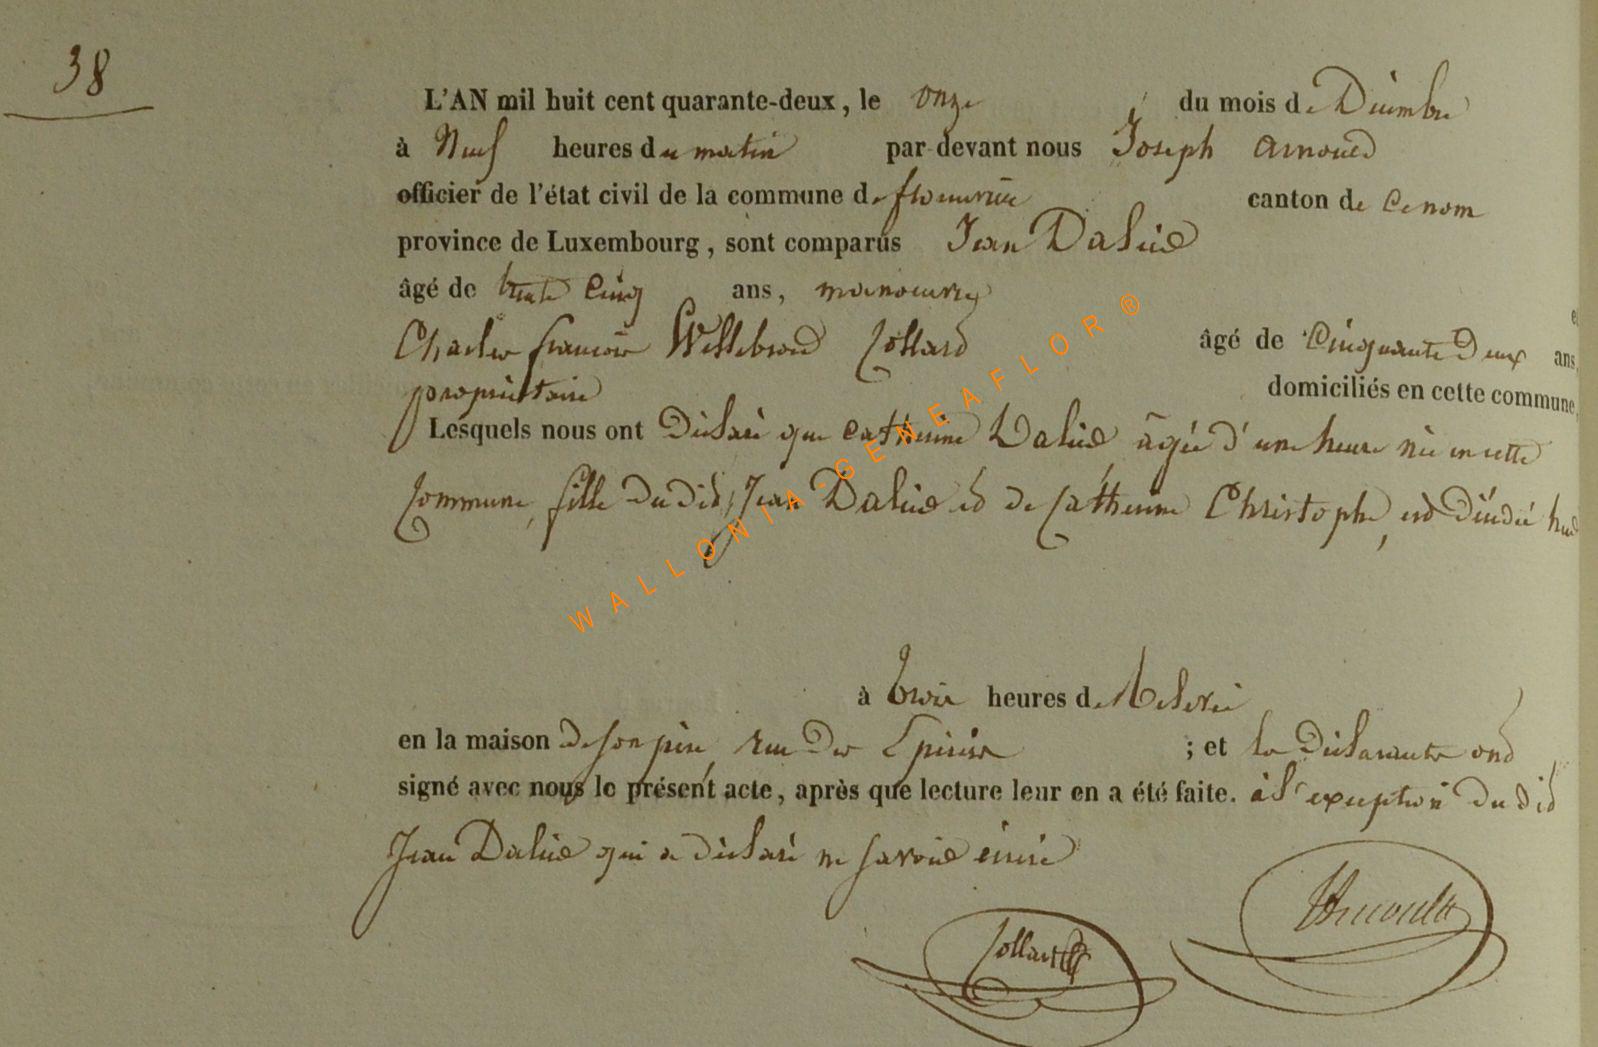 38
L'AN mil huit cent quarante-deux, le onze du mois de Décembre
à Neuf heures du matin par-devant nous Joseph Arnould
officier de l'état civil de la commune de canton de
province de Luxembourg, sont comparus Jean
âgé de trente cinq ans, manouvrier
et
Charles françois Willebrord Collard âgé de Cinquante Deux ans,
propriétaire domiciliés en cette commune,
Lesquels nous ont Déclaré que Catherine âgée d'une heure née en cette
Commune, fille du dit Jean et de Catherine Christophe, est décédée hier
à trois heures de Relevée
en la maison de son père, rue des ; et les Déclarants ont
signé avec nous le présent acte, après que lecture leur en a été faite. à l'exception du dit
Jean qui a déclaré ne savoir écrire
Collard
Arnould
WALLONIA-GENEAFLOR®